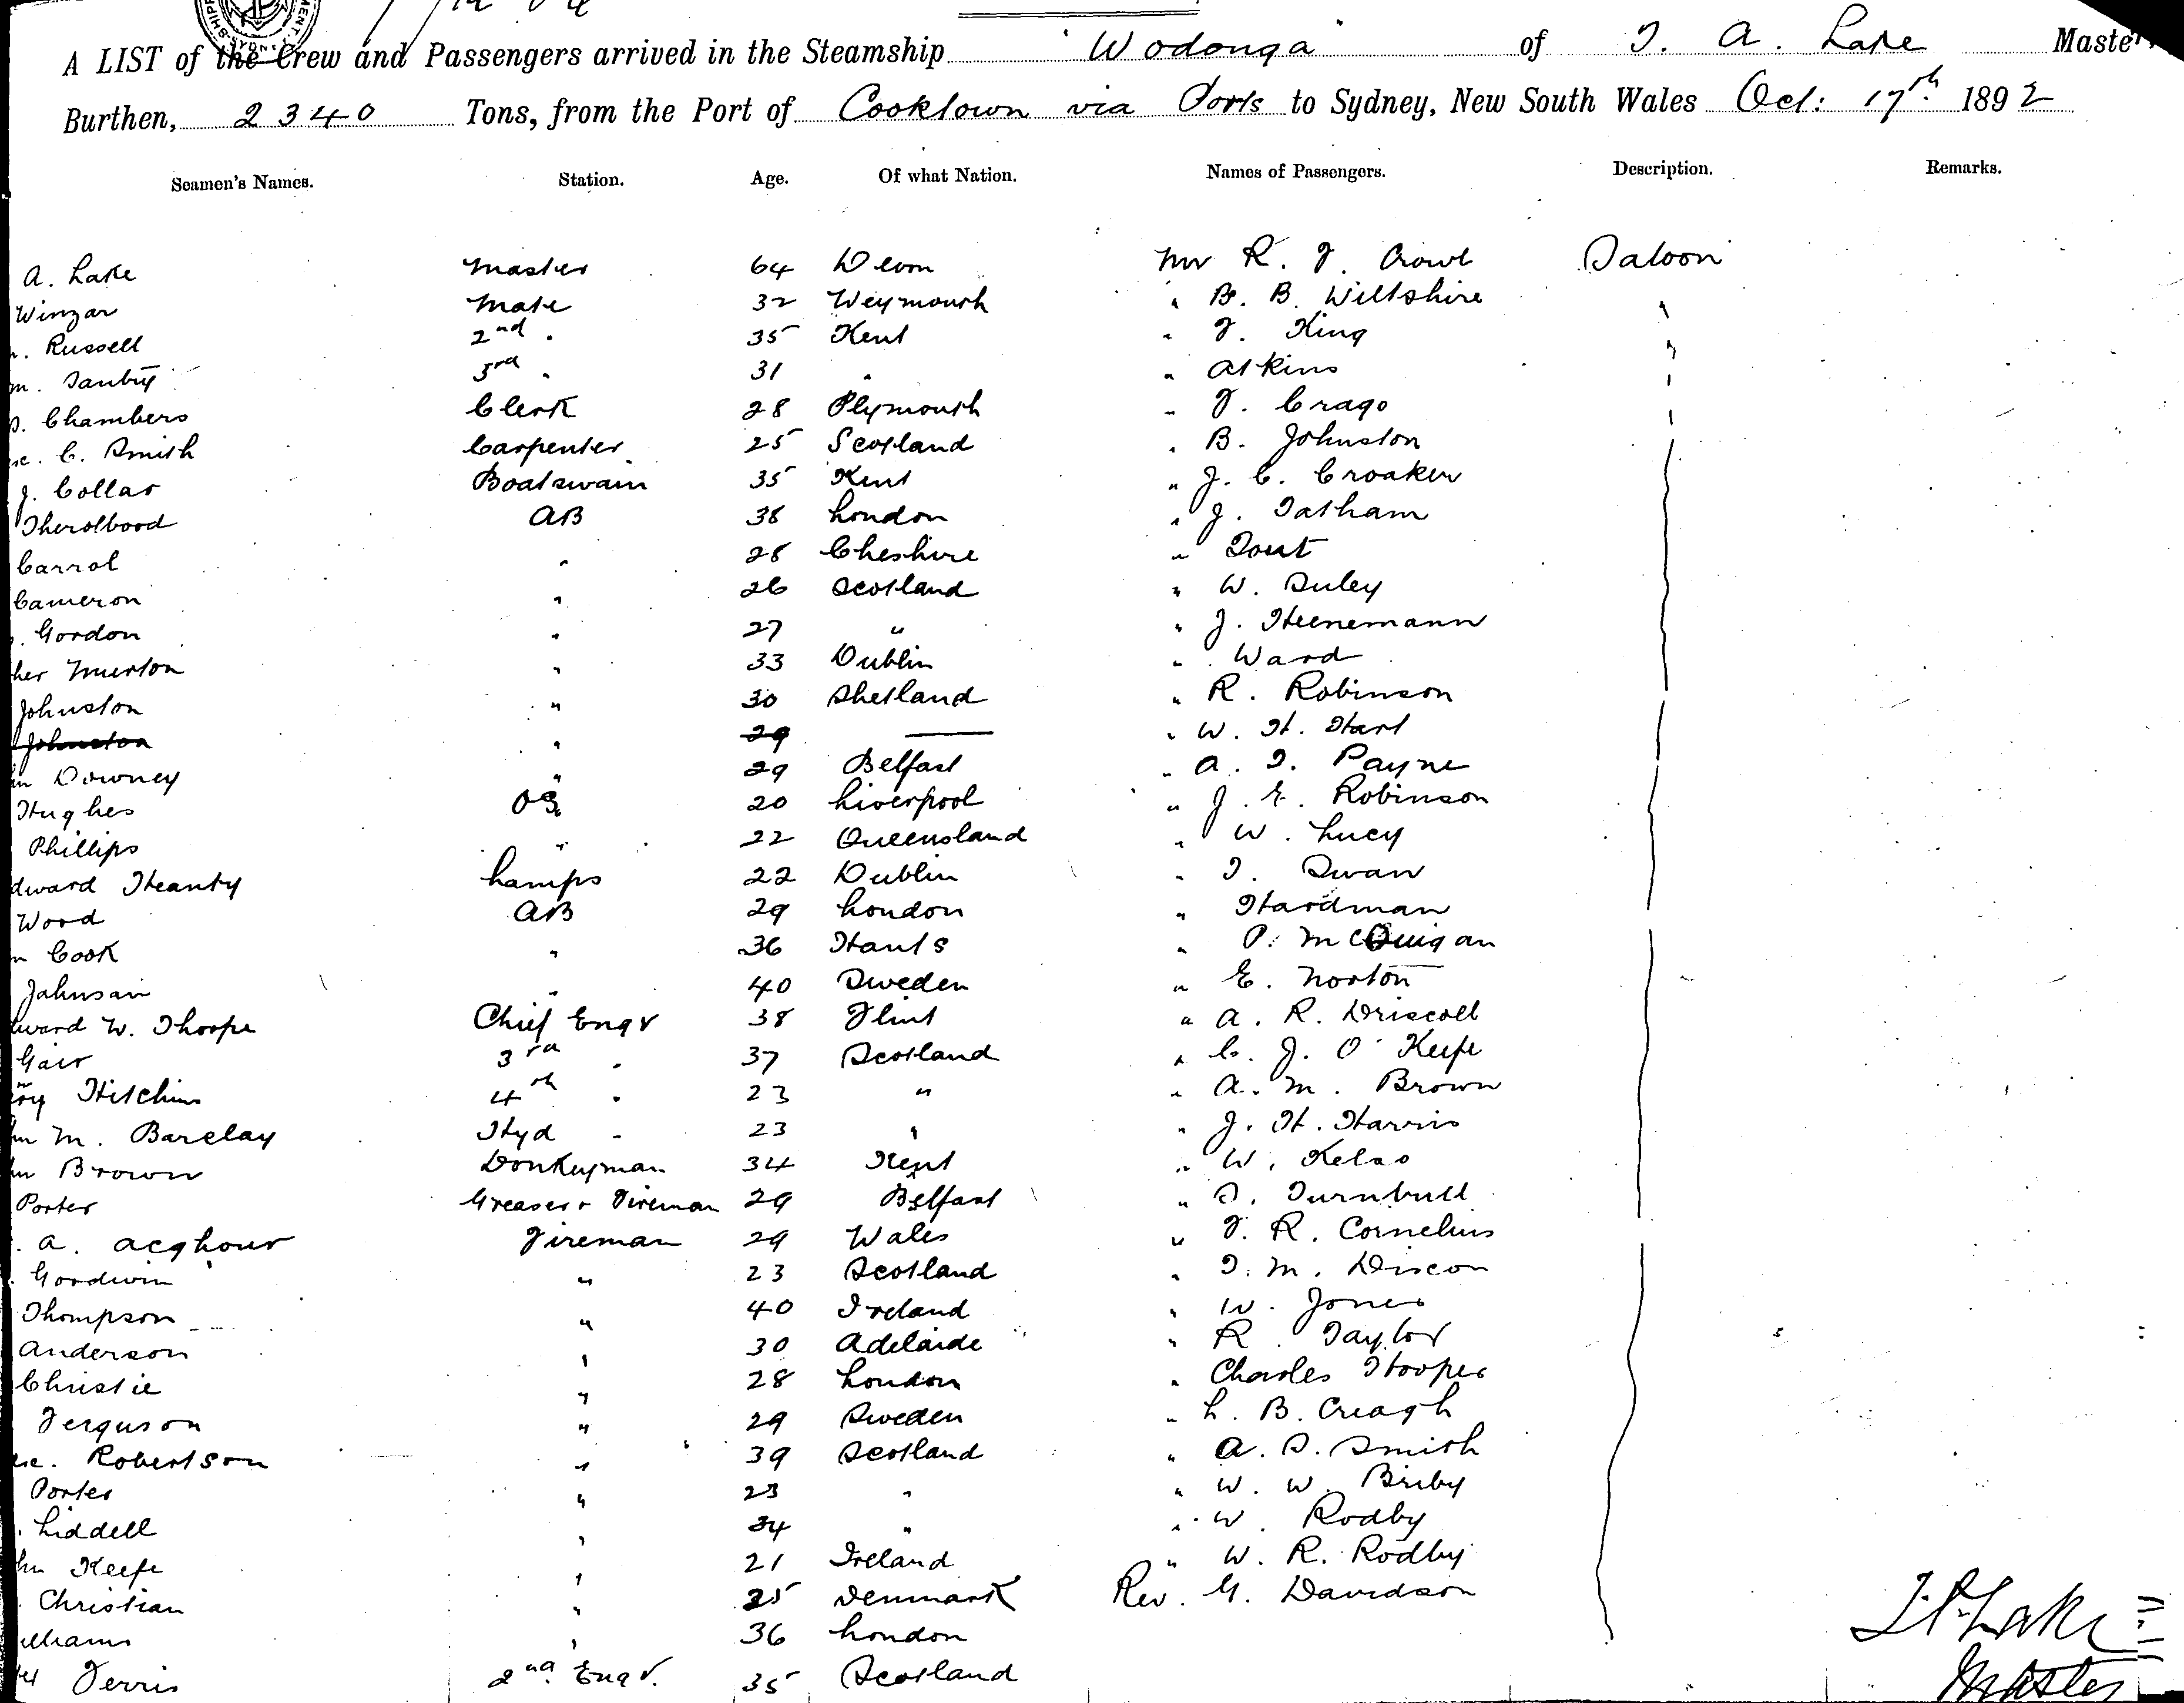 A LIST of the Crew and Passengers arrived in the Steamship "Wodonga" of T. A. Lake Master
Burthen, 2340 Tons, from the Port of Cooktown via Ports to Sydney, New South Wales Oct: 17th 1892
Seamen's Names. Station. Age. Of what Nation. Names of Passengers. Description. Remarks.
A. Lake Master 64 Devon Mr R. J. Crowl Saloon
Winzar Mate 32 Weymouth " B. B. Wiltshire "
Russell 2nd " 35 Kent " J. King "
3rd " 31 " " Atkins "
Chambers Clerk 28 Plymouth " J. Crago "
C. Smith Carpenter 25 Scotland " B. Johnston
J. Collar Boatswain 35 Kent " J. C. Croaker
AB 38 London " J. Tatham
Carrol " 28 Cheshire "
Cameron " 26 Scotland " W. Suley
Gordon " 27 " " J. Heenemann
her Murton " 33 Dublin " Ward
Johnston " 30 Shetland " R. Robinson
Johnston " 29 — " W. H. Hart
Downey " 29 Belfast " A. T. Payne
Hughes OS 20 Liverpool " J. E. Robinson
Phillips " 22 Queensland " W. Lucy
dward Heanty Lamps 22 Dublin " T. Swan
Wood AB 29 London " Hardman
Cook " 36 Hants " P. McGuigan
Johnson " 40 Sweden " E. Norton
ward W. Thorpe Chief Engr 38 Flint " A. R. Driscoll
Gair 3rd " 37 Scotland " C. J. O'Keefe
Hitchins 4th " 23 " " A. M. Brown
hn M. Barclay Hyd " 23 " " J. H. Harris
hn Brown Donkeyman 34 Kent " W. Kelso
Porter Greaser & Fireman 29 Belfast " S. Turnbull
A. Fireman 29 Wales " J. R. Cornelius
Goodwin " 23 Scotland " T. M.
Thompson " 40 Ireland " W. Jones
Anderson " 30 Adelaide " R. Taylor
Christie " 28 London " Charles Hooper
Ferguson " 29 Sweden " L. B. Creagh
Robertson " 39 Scotland " A. S. Smith
Porter " 23 " " W. W.
Liddell " 34 " " W. Rodby
hn Keefe " 21 Ireland " W. R. Rodby
Christian " 25 Denmark Rev. G. Davidson
illiams " 36 London
Ferris 2nd Engr. 35 Scotland
T. A. Lake
Master